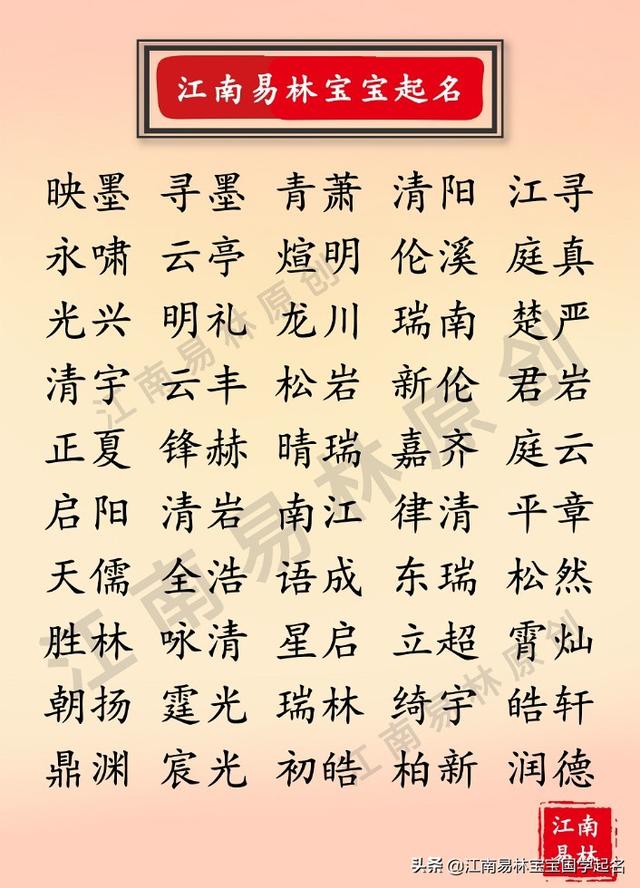 江南易林宝宝起名
映墨 寻墨 青萧 清阳 江寻
永啸 云亭 煊明 伦溪 庭真
光兴 明礼 龙川 瑞南 楚严
清宇 云丰 松岩 新伦 君岩
正夏 锋赫 晴瑞 嘉齐 庭云
启阳 清岩 南江 律清 平章
天儒 全浩 语成 东瑞 松然
胜林 咏清 星启 立超 霄灿
朝扬 霆光 瑞林 绮宇 皓轩
鼎渊 宸光 初皓 柏新 润德
江南易林原创
江南易林原创
江南易林原创
江南
易林
头条 @江南易林宝宝国学起名